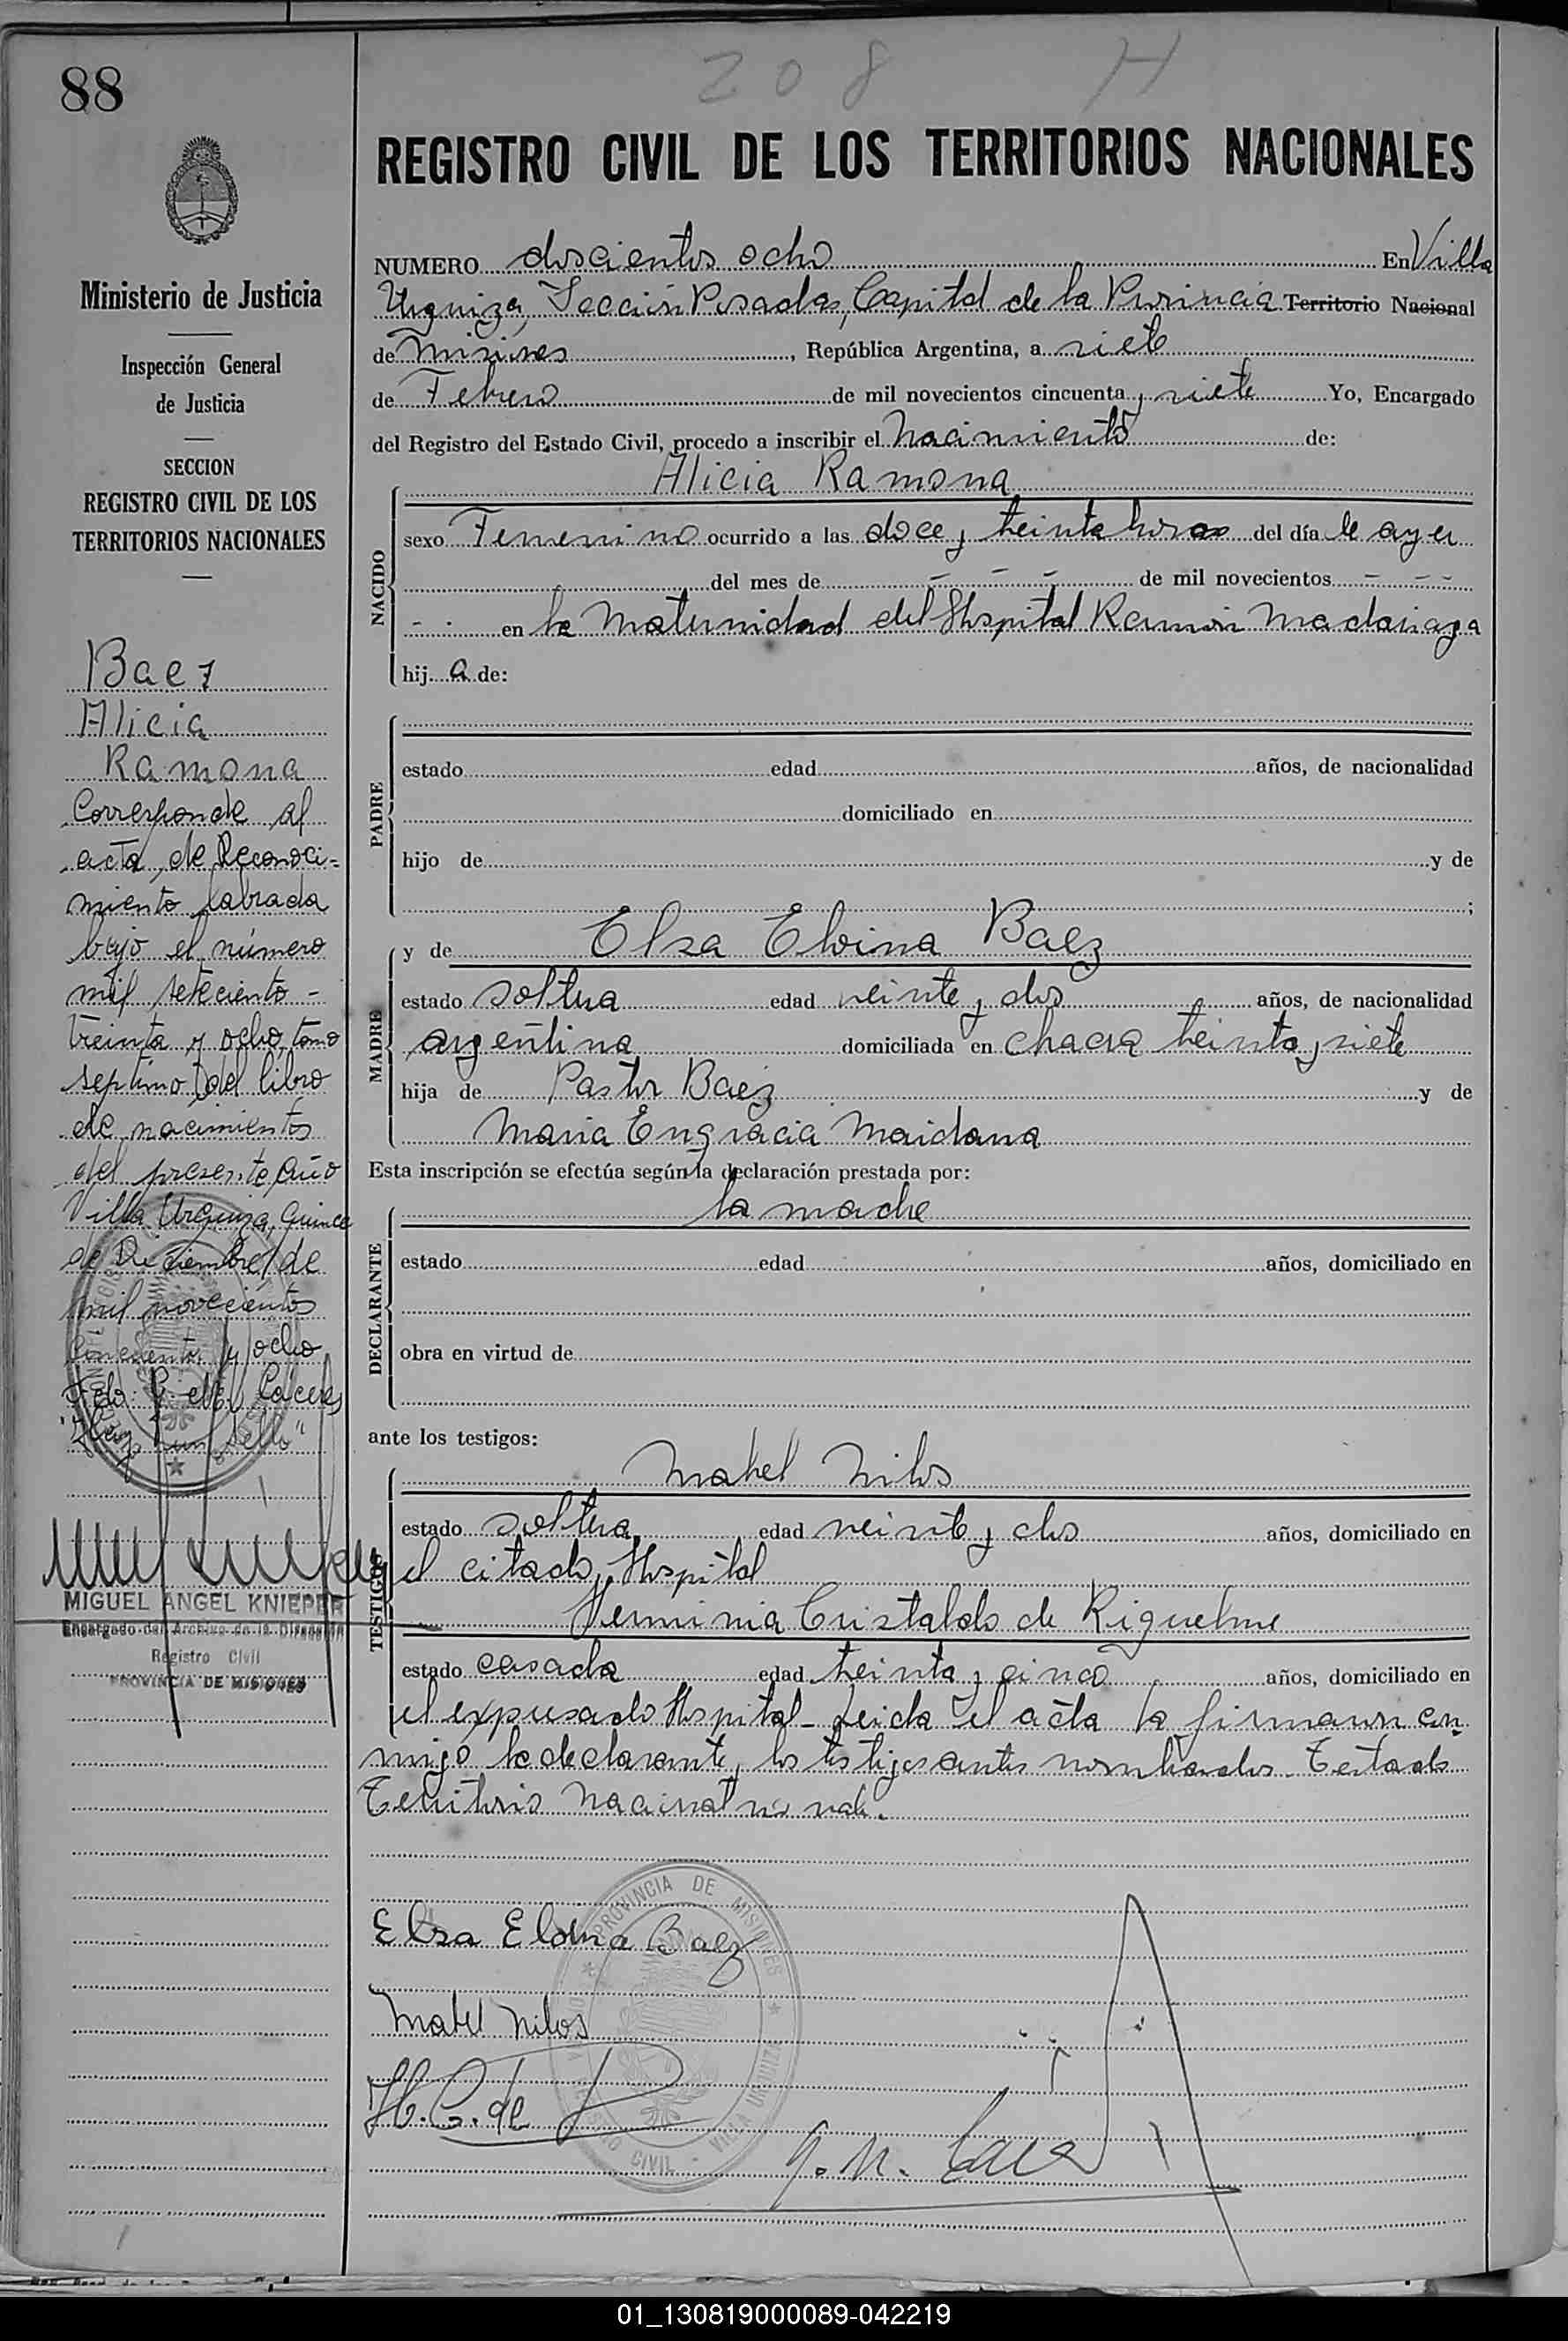 88
208 H
REGISTRO CIVIL DE LOS TERRITORIOS NACIONALES
Ministerio de Justicia
Inspección General
de Justicia
SECCION
REGISTRO CIVIL DE LOS
TERRITORIOS NACIONALES
Baez
Alicia
Ramona
Corresponde al
acta de Reconoci-
miento labrada
bajo el número
mil seteciento -
treinta y ocho, tomo
septimo del libro
de nacimientos
del presente año
Villa Urquiza, Quince
de Diciembre de
mil novecientos
cincuenta y ocho
Fdo: G. del Caceres
"Hay un sello"
MIGUEL ANGEL KNIEPER
Encargado del Archivo de la Dirección
Registro Civil
PROVINCIA DE MISIONES
NUMERO doscientos ocho En Villa
Urquiza, Sección Posadas, Capital de la Provincia Territorio Nacional
de Misiones, República Argentina, a siete
de Febrero de mil novecientos cincuenta y siete Yo, Encargado
del Registro del Estado Civil, procedo a inscribir el Nacimiento de:
NACIDO
Alicia Ramona
sexo Femenino ocurrido a las doce y treinta horas del día de ayer
del mes de - - - de mil novecientos - - -
- - en la Maternidad del Hospital Ramón Madariaga
hij a de:
PADRE
estado edad años, de nacionalidad
domiciliado en
hijo de y de
;
MADRE
y de Elsa Elvina Baez
estado soltera edad veinte y dos años, de nacionalidad
argentina domiciliada en chacra treinta y siete
hija de Pastor Baez y de
Maria Engracia Maidana
Esta inscripción se efectúa según la declaración prestada por:
DECLARANTE
la madre
estado edad años, domiciliado en
obra en virtud de
ante los testigos:
TESTIGOS
Mabel Nilos
estado soltera edad veinte y dos años, domiciliado en
el citado Hospital
Herminia Cristaldo de Riquelme
estado casada edad treinta y cinco años, domiciliado en
el expresado Hospital - Leida el acta la firmaron con-
migo la declarante y los testigos antes nombrados. Testado
Territorio Nacional no vale.
PROVINCIA DE MISIONES
REGISTRO CIVIL - VILLA URQUIZA
Elsa Elvina Baez
Mabel Nilos
H. C. de R
01_130819000089-042219